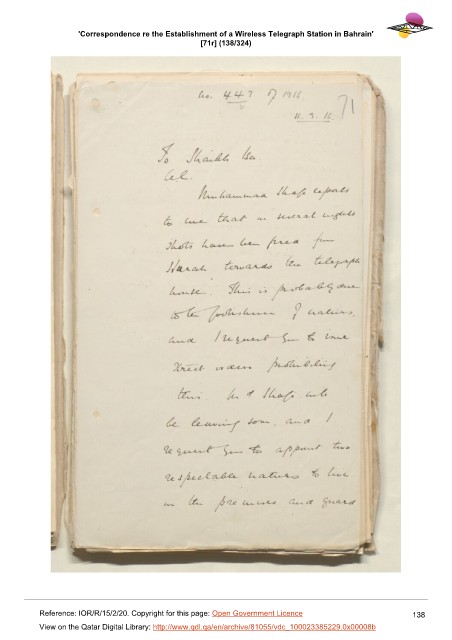 'Correspondence re the Establishment of a Wireless Telegraph Station in Bahrain'
[71r] (138/324)
No. 447 of 1916
71
11. 3. 16.
To Shaikh Isa
Muhammad Shafi reports
to me that on several nights
shots have been fired from
towards the telegraph
house. This is probably due
to the foolishness of natives,
and I request you to issue
strict orders prohibiting
this. Md Shafi will
be leaving soon, and I
request you to appoint two
respectable natives to live
in the premises and guard
Reference: IOR/R/15/2/20. Copyright for this page: Open Government Licence
138
View on the Qatar Digital Library: http://www.qdl.qa/en/archive/81055/vdc_100023385229.0x00008b